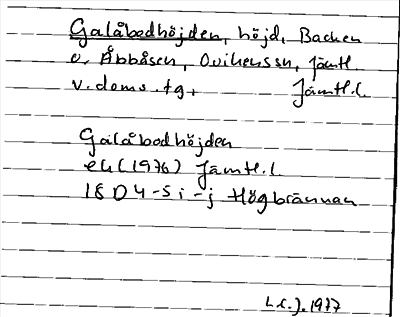 Galåbodhöjden, höjd, Backen
o. Åbbåsen, Ovikens sn, Jämtl
v. doms. tg, Jämtl. l.
Galåbodhöjden
ek (1976) Jämtl. l
18 D 4-5 i-j Högbrännan
L.E.J. 1977